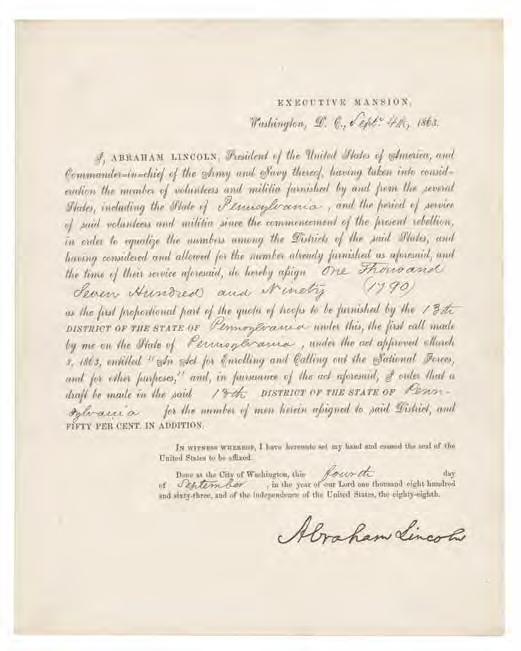 EXECUTIVE MANSION,
Washington, D. C., Septr 4th, 1863.
I, ABRAHAM LINCOLN, President of the United States of America, and
Commander-in-chief of the Army and Navy thereof, having taken into consid-
eration the number of volunteers and militia furnished by and from the several
States, including the State of Pennsylvania, and the period of service
of said volunteers and militia since the commencement of the present rebellion,
in order to equalize the numbers among the Districts of the said States, and
having considered and allowed for the number already furnished as aforesaid, and
the time of their service aforesaid, do hereby assign One Thousand
Seven Hundred and Ninety (1790)
as the first proportional part of the quota of troops to be furnished by the 18th
DISTRICT OF THE STATE OF Pennsylvania under this, the first call made
by me on the State of Pennsylvania, under the act approved March
3, 1863, entitled "An Act for Enrolling and Calling out the National Forces,
and for other purposes," and, in pursuance of the act aforesaid, I order that a
draft be made in the said 18th DISTRICT OF THE STATE OF Penn-
sylvania for the number of men herein assigned to said District, and
FIFTY PER CENT. IN ADDITION.
IN WITNESS WHEREOF, I have hereunto set my hand and caused the seal of the
United States to be affixed.
Done at the City of Washington, this fourth day
of September, in the year of our Lord one thousand eight hundred
and sixty-three, and of the independence of the United States, the eighty-eighth.
Abraham Lincoln